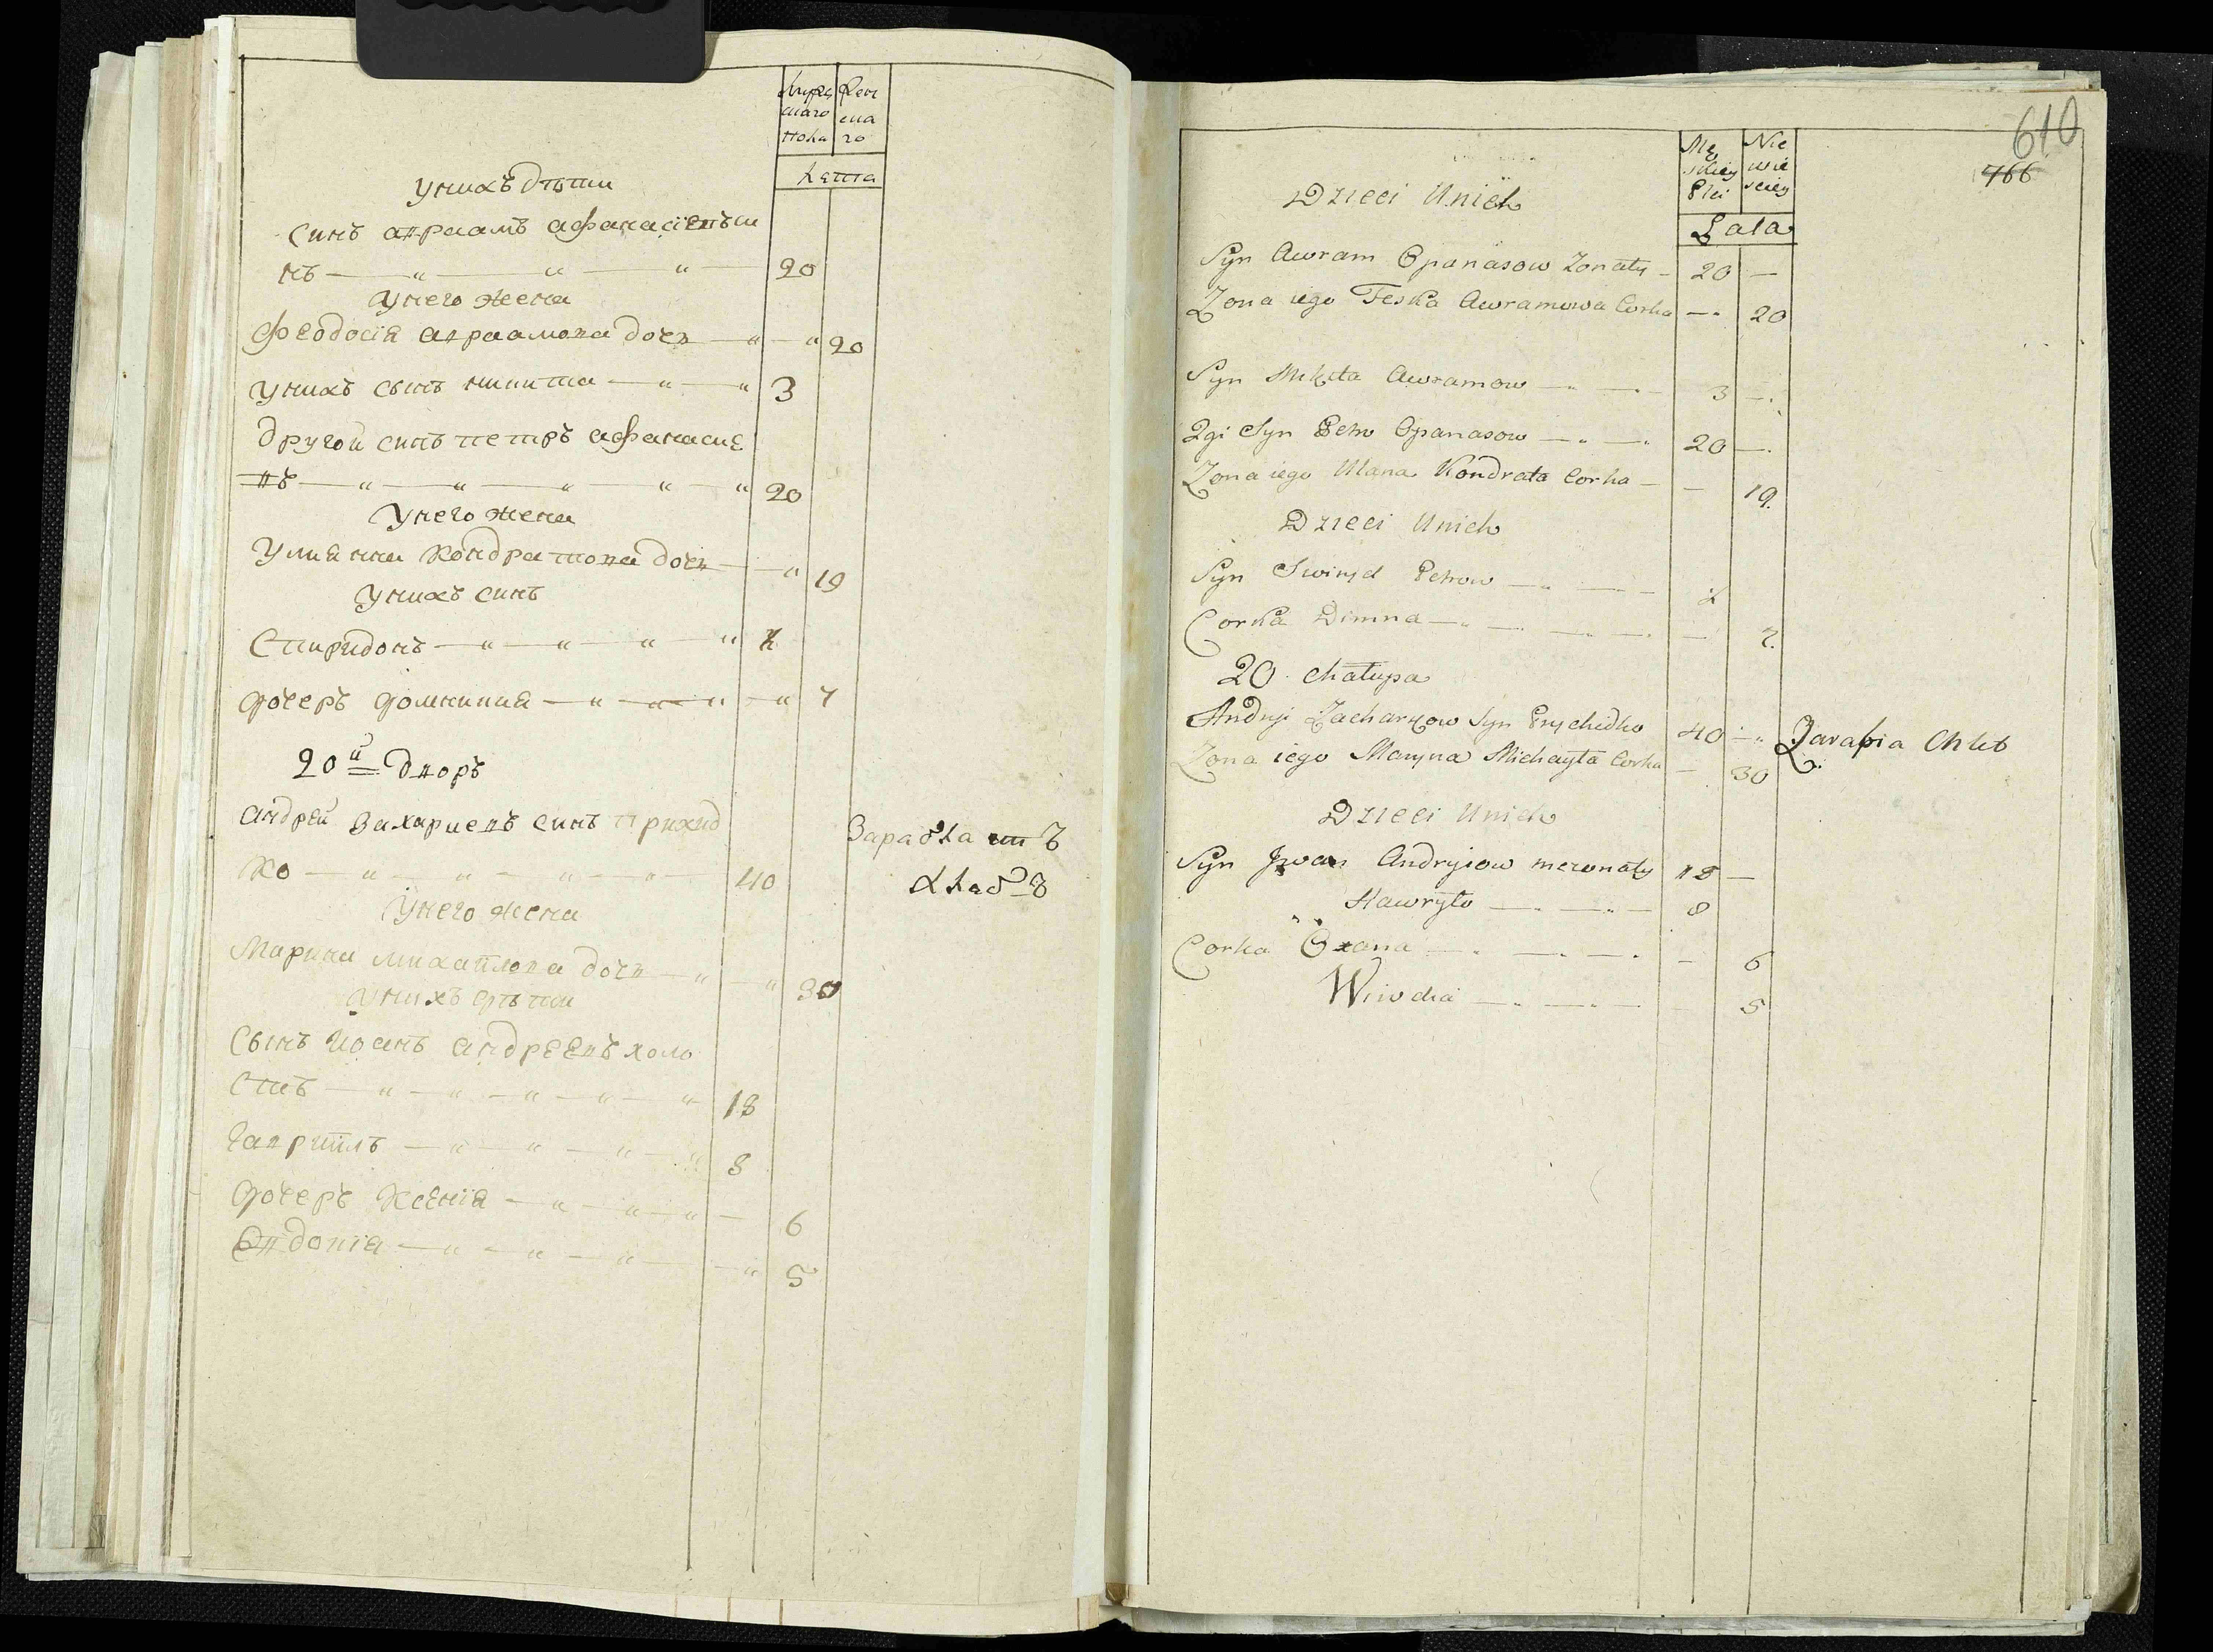 Мужескаго пола
Женскаго
Лета
У нихъ дѣти
Синъ авраамъ афанасіевъ си
нъ 20
У него жена
Феодосія авраамова дочь 20
У нихъ сынъ никита 3
Другой синъ петръ афанасие
въ 20
У него жена
Улиянна Кондратова дочь 19
У нихъ синъ
Спиридонъ
Дочеръ Домникия 7
20й дворъ
Андрей Захариевъ синъ прихид
ко 40
Зараблаетъ
хлебъ
У него жена
Марина михайлова дочь 30
У нихъ дѣти
Сынъ Иоанъ андреевъ холо
стъ 18
Гавриилъ 8
Дочеръ Ксенія 6
Евдокія 5
610
766
Męskiey Płci
Niewieściey
Lata
Dzieci Unich
Syn Awram Opanasow Zonaty 20
Zona iego Feska Awramowa Corka 20
Syn Mikita Awramow 3
2gi Syn Petro Opanasow 20
Zona iego Ulana Kondrata Corka 19
Dzieci Unich
Syn Swiryd Petrow
Corka Dimna 7
20 Chałupa
Andryi Zacharyow Syn Prychidko 40 Zarabia Chleb
Zona iego Maryna Michayła Corka 30
Dzieci Unich
Syn Iwan Andryiow niezonaty 18
Hawryło 8
Corka Oxana 6
Wiwdia 5